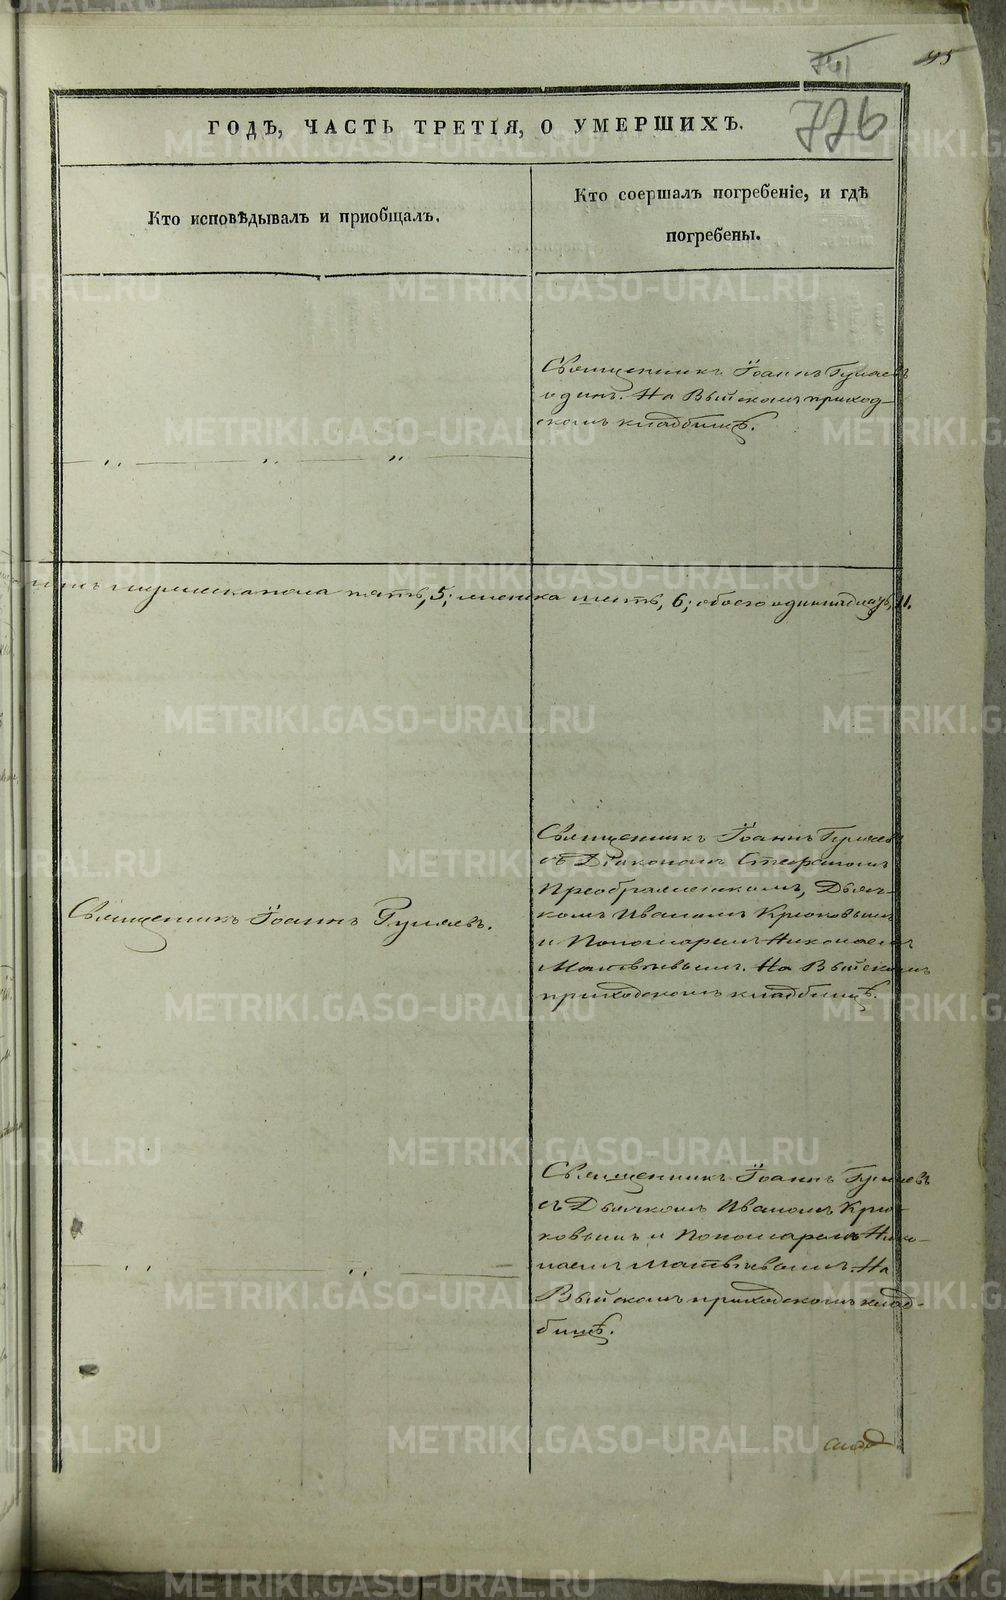 95
741
776
ГОДѢ, ЧАСТЬ ТРЕТІЯ, О УМЕРШИХЪ.
Кто исповѣдывалъ и приобщалъ.
Кто соершалъ погребеніе, и гдѣ
погребены.
Священникъ Іоаннъ Гуляевъ
одинъ. На Выйскомъ приход-
скомъ кладбищѣ.
„ „ „
мужеска пола пять, 5; женска шесть, 6; обоего одиннадцать, 11.
Священникъ Іоаннъ Гуляевъ.
Священникъ Іоаннъ Гуляевъ
съ Діакономъ Стефаномъ
Преображенскимъ, Дьяч-
комъ Иваномъ Крюковымъ
и Пономаремъ Николаемъ
Матвѣевымъ. На Выйскомъ
приходскомъ кладбищѣ.
„ „
Священникъ Іоаннъ Гуляевъ
съ Дьячкомъ Иваномъ Крю-
ковымъ и Пономаремъ Нико-
лаемъ Матвѣевымъ. На
Выйскомъ приходскомъ клад-
бищѣ.
METRIKI.GASO-URAL.RU